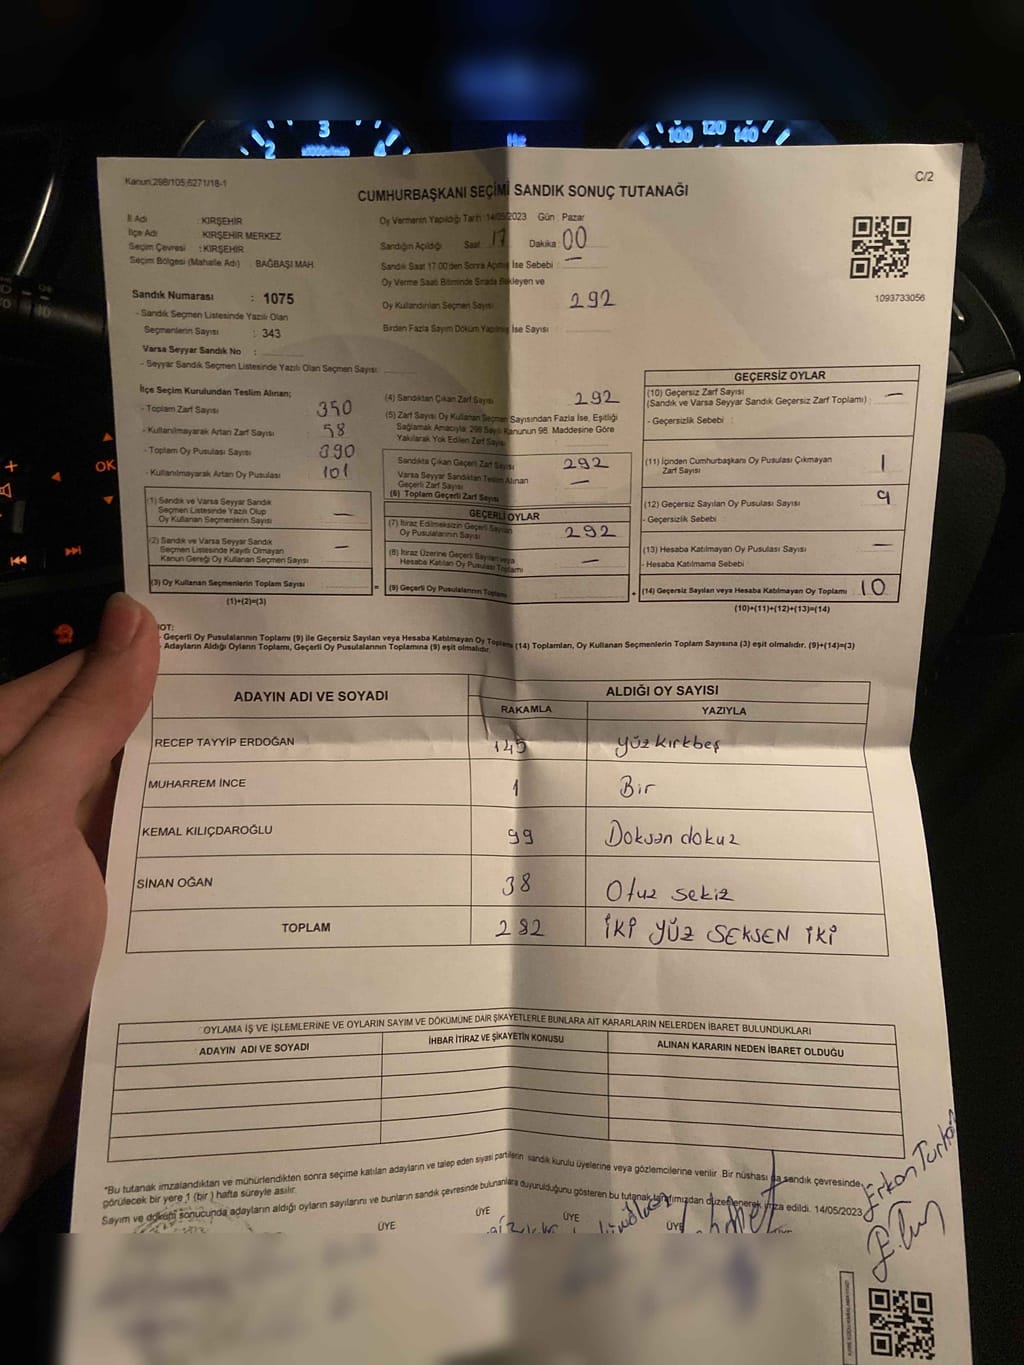 Kanun:298/105;6271/18-1
C/2
CUMHURBAŞKANI SEÇİMİ SANDIK SONUÇ TUTANAĞI
İl Adı : KIRŞEHİR
İlçe Adı : KIRŞEHİR MERKEZ
Seçim Çevresi : KIRŞEHİR
Seçim Bölgesi (Mahalle Adı) : BAĞBAŞI MAH.
Oy Vermenin Yapıldığı Tarih : 14/05/2023 Gün : Pazar
Sandığın Açıldığı Saat 17 Dakika : 00
Sandık Saat 17:00'den Sonra Açılmış İse Sebebi : —
Oy Verme Saati Bitiminde Sırada Bekleyen ve
Oy Kullandırılan Seçmen Sayısı 292
Birden Fazla Sayım Döküm Yapılmış İse Sayısı :
1093733056
Sandık Numarası : 1075
- Sandık Seçmen Listesinde Yazılı Olan
Seçmenlerin Sayısı : 343
Varsa Seyyar Sandık No :
- Seyyar Sandık Seçmen Listesinde Yazılı Olan Seçmen Sayısı:
İlçe Seçim Kurulundan Teslim Alınan;
- Toplam Zarf Sayısı : 350
- Kullanılmayarak Artan Zarf Sayısı : 58
- Toplam Oy Pusulası Sayısı : 390
- Kullanılmayarak Artan Oy Pusulası : 101
(1) Sandık ve Varsa Seyyar Sandık
Seçmen Listesinde Yazılı Olup
Oy Kullanan Seçmenlerin Sayısı —
(2) Sandık ve Varsa Seyyar Sandık
Seçmen Listesinde Kayıtlı Olmayan
Kanun Gereği Oy Kullanan Seçmen Sayısı —
(3) Oy Kullanan Seçmenlerin Toplam Sayısı
(1)+(2)=(3)
(4) Sandıktan Çıkan Zarf Sayısı : 292
(5) Zarf Sayısı Oy Kullanan Seçmen Sayısından Fazla İse, Eşitliği
Sağlamak Amacıyla; 298 Sayılı Kanunun 98. Maddesine Göre
Yakılarak Yok Edilen Zarf Sayısı
Sandıkta Çıkan Geçerli Zarf Sayısı : 292
Varsa Seyyar Sandıktan Teslim Alınan
Geçerli Zarf Sayısı —
(6) Toplam Geçerli Zarf Sayısı
GEÇERLİ OYLAR
(7) İtiraz Edilmeksizin Geçerli Sayılan
Oy Pusulalarının Sayısı : 292
(8) İtiraz Üzerine Geçerli Sayılan veya
Hesaba Katılan Oy Pusulası Toplamı —
(9) Geçerli Oy Pusulalarının Toplamı
GEÇERSİZ OYLAR
(10) Geçersiz Zarf Sayısı
(Sandık ve Varsa Seyyar Sandık Geçersiz Zarf Toplamı) : —
- Geçersizlik Sebebi :
(11) İçinden Cumhurbaşkanı Oy Pusulası Çıkmayan
Zarf Sayısı 1
(12) Geçersiz Sayılan Oy Pusulası Sayısı 9
- Geçersizlik Sebebi :
(13) Hesaba Katılmayan Oy Pusulası Sayısı —
- Hesaba Katılmama Sebebi :
(14) Geçersiz Sayılan veya Hesaba Katılmayan Oy Toplamı 10
(10)+(11)+(12)+(13)=(14)
NOT:
- Geçerli Oy Pusulalarının Toplamı (9) ile Geçersiz Sayılan veya Hesaba Katılmayan Oy Toplamı (14) Toplamları, Oy Kullanan Seçmenlerin Toplam Sayısına (3) eşit olmalıdır. (9)+(14)=(3)
- Adayların Aldığı Oyların Toplamı, Geçerli Oy Pusulalarının Toplamına (9) eşit olmalıdır.
ADAYIN ADI VE SOYADI ALDIĞI OY SAYISI
RAKAMLA YAZIYLA
RECEP TAYYİP ERDOĞAN 145 yüzkırkbeş
MUHARREM İNCE 1 Bir
KEMAL KILIÇDAROĞLU 99 Doksan dokuz
SİNAN OĞAN 38 Otuz sekiz
TOPLAM 282 İKİ YÜZ SEKSEN İKİ
OYLAMA İŞ VE İŞLEMLERİNE VE OYLARIN SAYIM VE DÖKÜMÜNE DAİR ŞİKAYETLERLE BUNLARA AİT KARARLARIN NELERDEN İBARET BULUNDUKLARI
ADAYIN ADI VE SOYADI İHBAR İTİRAZ VE ŞİKAYETİN KONUSU ALINAN KARARIN NEDEN İBARET OLDUĞU
*Bu tutanak imzalandıktan ve mühürlendikten sonra seçime katılan adayların ve talep eden siyasi partilerin sandık kurulu üyelerine veya gözlemcilerine verilir. Bir nüshası da sandık çevresinde
görülecek bir yere 1 (bir) hafta süreyle asılır.
Sayım ve döküm sonucunda adayların aldığı oyların sayılarını ve bunların sandık çevresinde bulunanlara duyurulduğunu gösteren bu tutanak tarafımızdan düzenlenerek imza edildi. 14/05/2023
ÜYE ÜYE ÜYE ÜYE
Erkan
OK
2 3 4
100 120 140